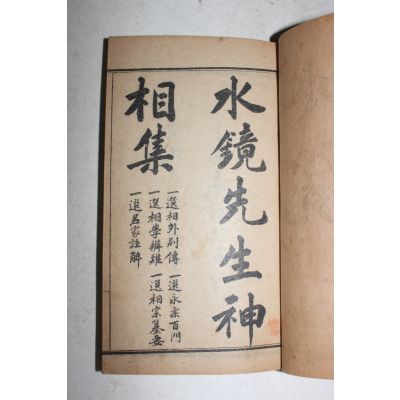 水鏡先生神
相集
一選相外別傳 一選永樂百門
一選相學辨疑 一選相宗纂要
一選名家註解